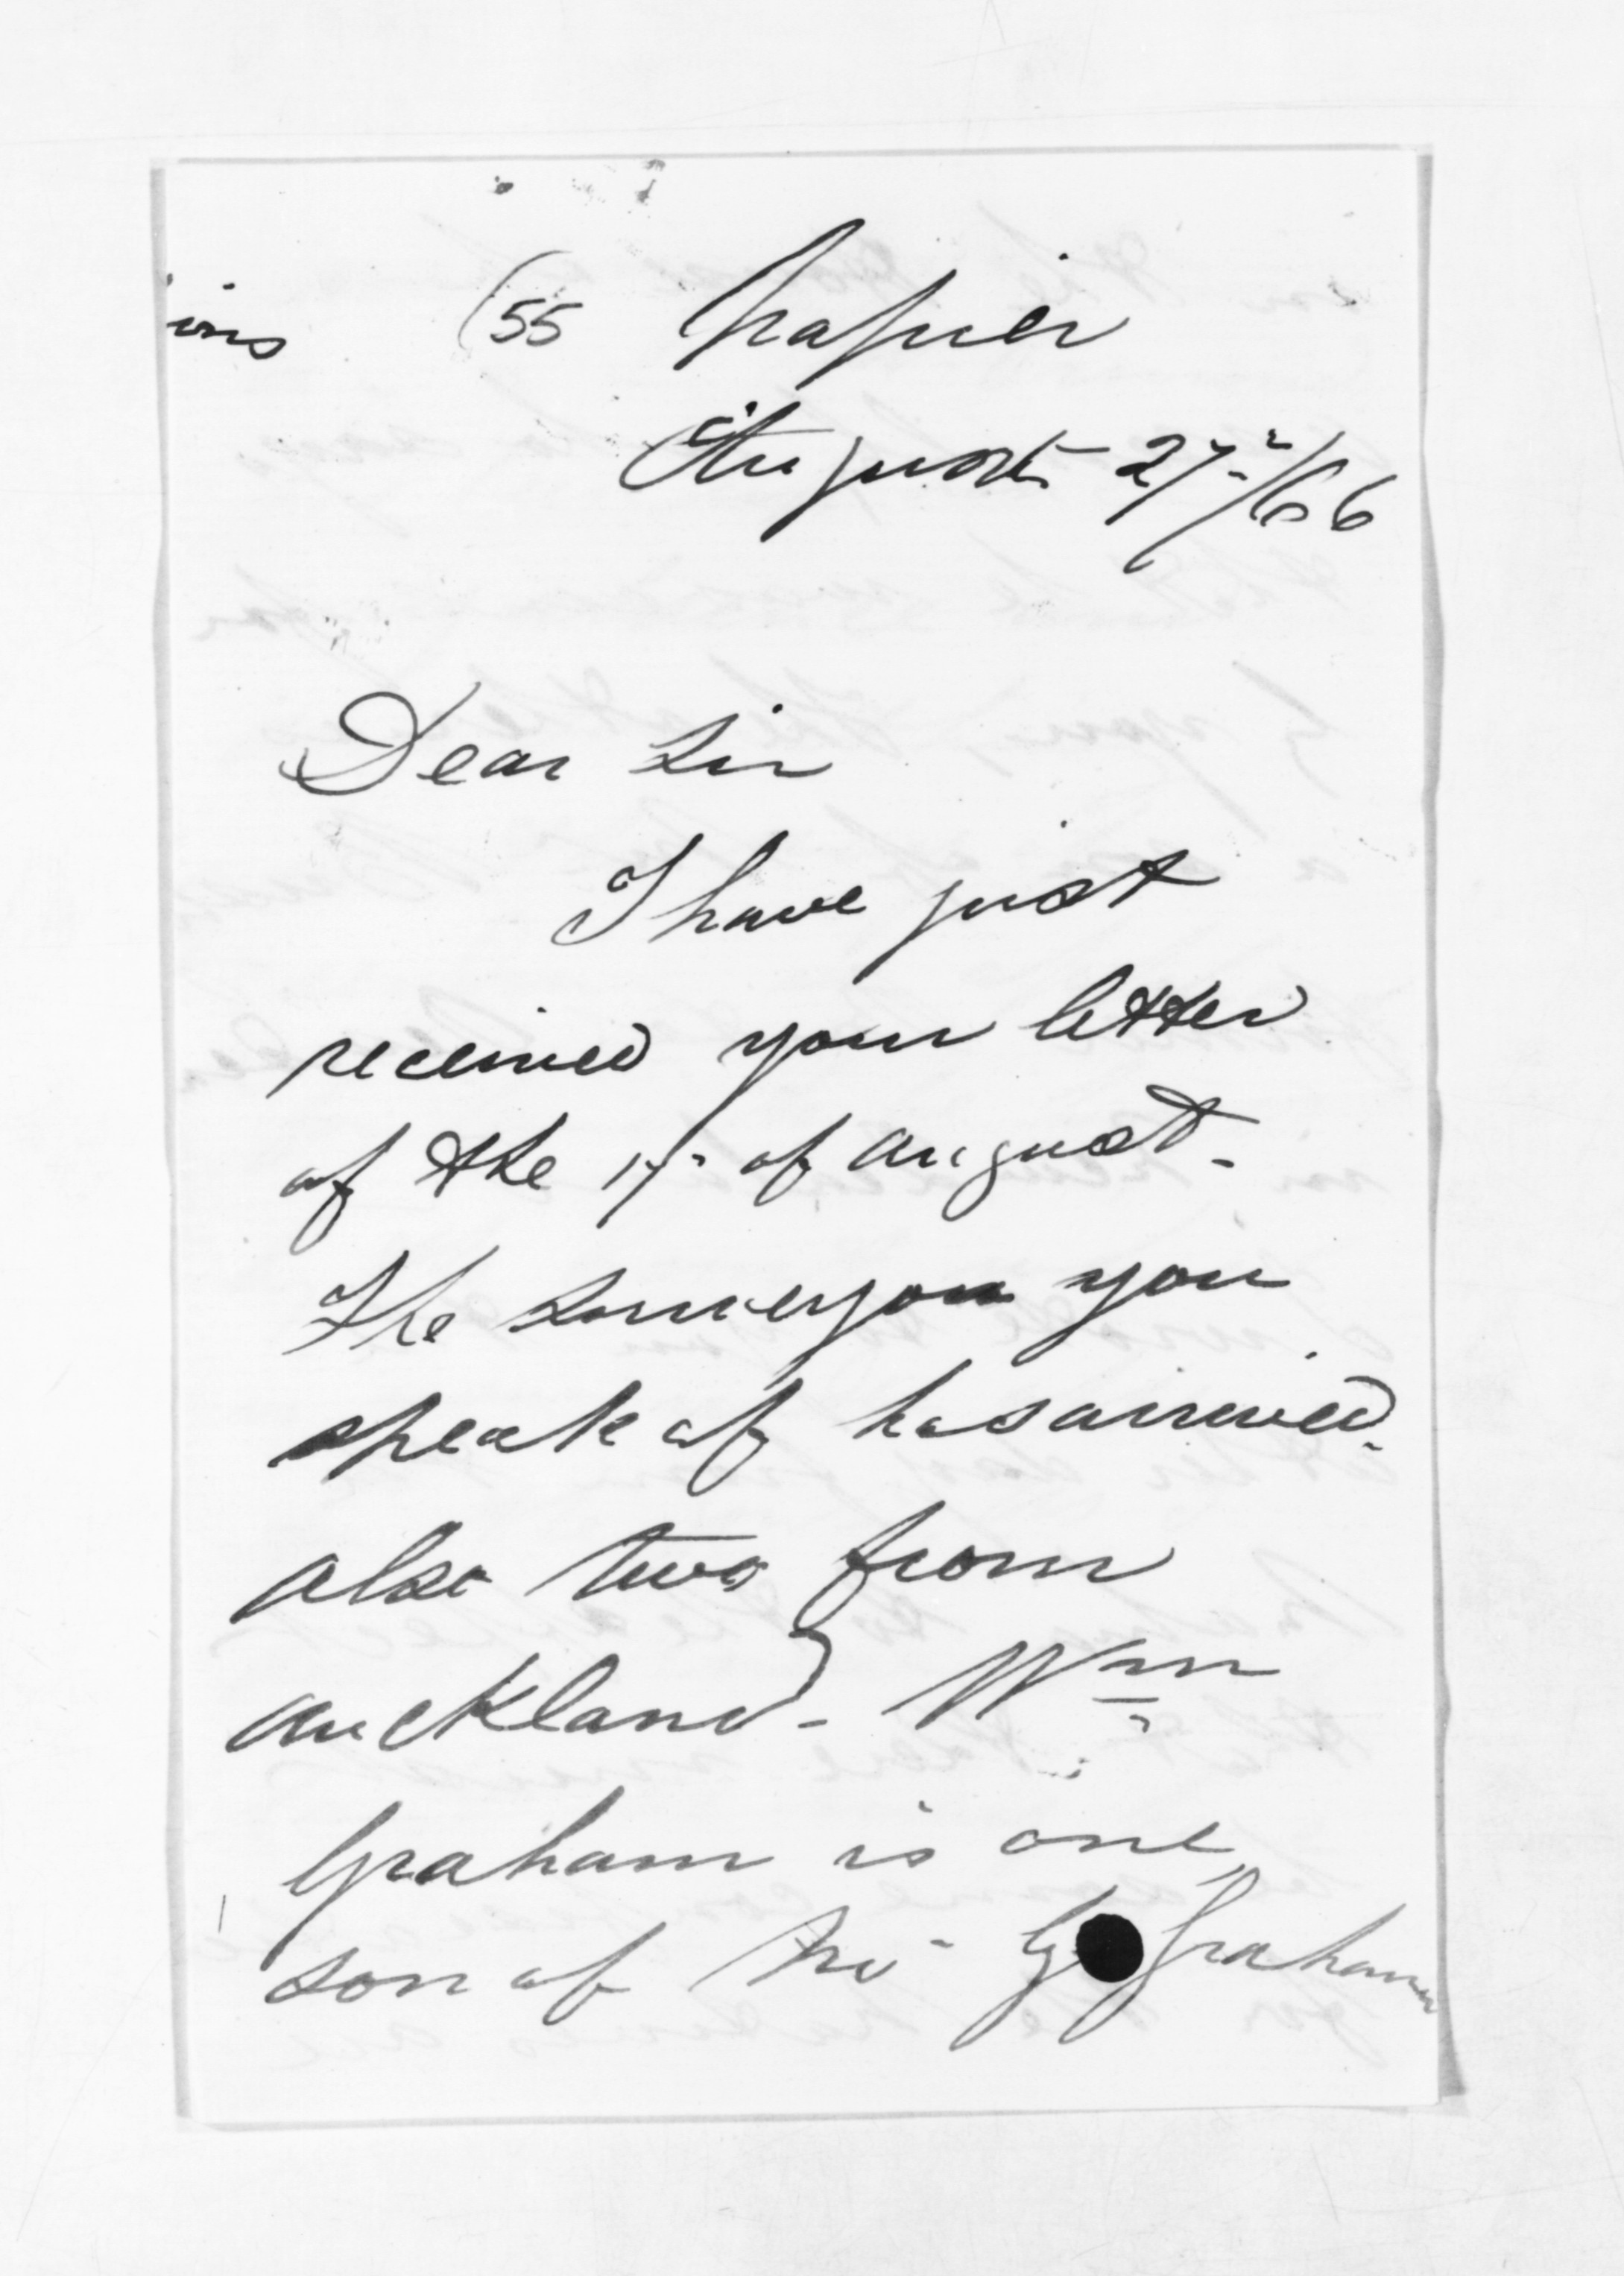 (55 Napier
August 27/66
Dear Sir
I have just
received your letter
of the 17 of August.
The surveyor you
speak of has arrived.
also two from
Auckland - Wm
Graham is one
son of Mr G Graham